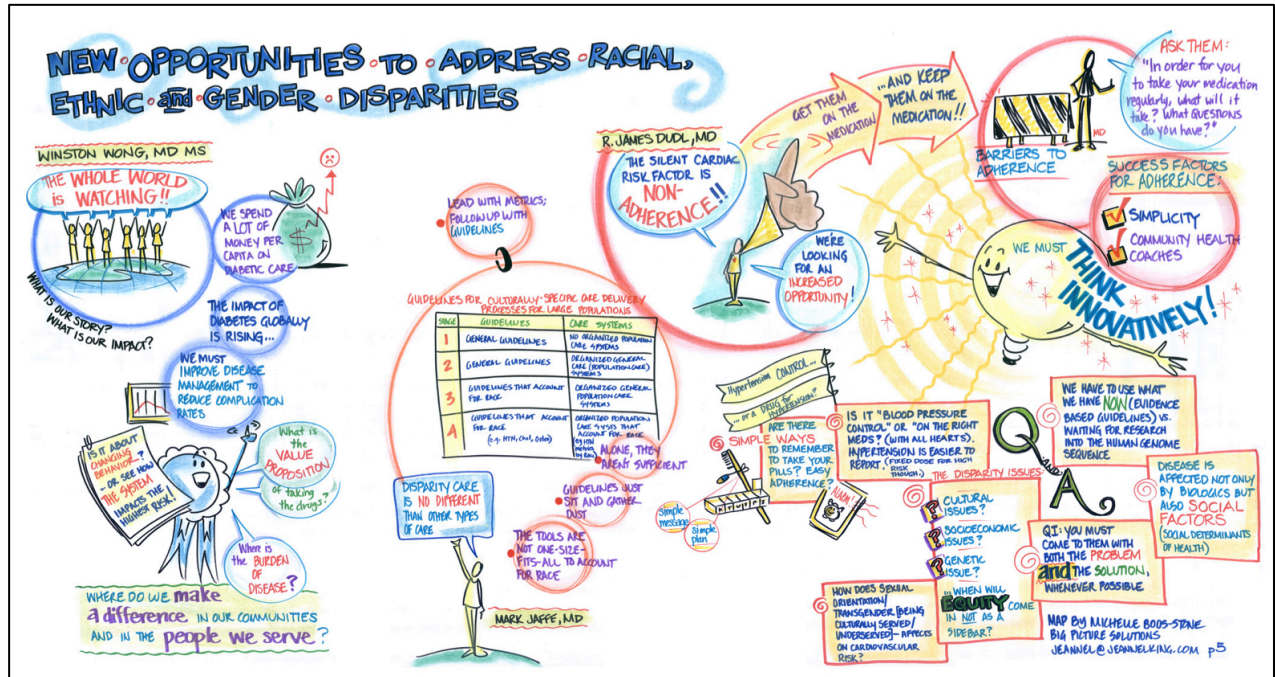 NEW • OPPORTUNITIES • TO • ADDRESS • RACIAL,
ETHNIC • and • GENDER • DISPARITIES
WINSTON WONG, MD MS
THE WHOLE WORLD
is WATCHING!!
WHAT IS OUR STORY?
WHAT IS OUR IMPACT?
WE SPEND
A LOT OF
MONEY PER
CAPITA ON
DIABETIC CARE
$
THE IMPACT OF
DIABETES GLOBALLY
IS RISING...
WE MUST
IMPROVE DISEASE
MANAGEMENT TO
REDUCE COMPLICATION
RATES
IS IT ABOUT
CHANGING
BEHAVIOR..?
- OR SEE HOW
THE SYSTEM
IMPACTS THE
HIGHEST RISK!
What is
the VALUE
PROPOSITION
of taking
the drugs?
Where is
the BURDEN
OF
DISEASE?
WHERE DO WE make
a difference IN OUR COMMUNITIES
AND IN THE people we serve?
LEAD WITH METRICS;
FOLLOW UP WITH
GUIDELINES
GUIDELINES FOR CULTURALLY-SPECIFIC CARE DELIVERY
PROCESSES FOR LARGE POPULATIONS
STAGE GUIDELINES CARE SYSTEMS
1 GENERAL GUIDELINES NO ORGANIZED POPULATION
CARE SYSTEMS
2 GENERAL GUIDELINES ORGANIZED GENERAL
CARE (POPULATION CARE)
SYSTEMS
3 GUIDELINES THAT ACCOUNT
FOR RACE
ORGANIZED GENERAL
POPULATION CARE
SYSTEMS
4 GUIDELINES THAT ACCOUNT
FOR RACE
(e.g. HTN, Chol,
ORGANIZED POPULATION
CARE SYSTS THAT
ACCOUNT FOR RACE
ALONE, THEY
AREN'T SUFFICIENT
GUIDELINES JUST
SIT AND GATHER
DUST
THE TOOLS ARE
NOT ONE-SIZE-
FITS-ALL TO ACCOUNT
FOR RACE
DISPARITY CARE
IS NO DIFFERENT
THAN OTHER TYPES
OF CARE
MARK JAFFE, MD
R. JAMES DUDL, MD
THE SILENT CARDIAC
RISK FACTOR IS
NON-
ADHERENCE!!
WE'RE
LOOKING
FOR AN
INCREASED
OPPORTUNITY!
GET THEM
ON THE
MEDICATION
...AND KEEP
THEM ON THE
MEDICATION!!
MD
BARRIERS TO
ADHERENCE
ASK THEM:
"In order for you
to take your medication
regularly, what will it
take? What QUESTIONS
do you have?"
SUCCESS FACTORS
FOR ADHERENCE:
SIMPLICITY
COMMUNITY HEALTH
COACHES
WE MUST
THINK
INNOVATIVELY!
Hypertension CONTROL...
...or a DRUG for
HYPERTENSION?
ARE THERE
SIMPLE WAYS
TO REMEMBER
TO TAKE YOUR
PILLS? EASY
ADHERENCE?
Simple
message
Simple
plan
IS IT "BLOOD PRESSURE
CONTROL" OR "ON THE RIGHT
MEDS? (WITH ALL HEARTS).
HYPERTENSION IS EASIER TO
REPORT. (FIXED DOSE FOR HIGH
RISK
THOUGH.)
THE DISPARITY ISSUES:
? CULTURAL
ISSUES?
? SOCIOECONOMIC
ISSUES?
? GENETIC
ISSUE?
...WHEN WILL
EQUITY COME
IN NOT AS A
SIDEBAR?
HOW DOES SEXUAL
ORIENTATION/
TRANSGENDER [BEING
CULTURALLY SERVED/
UNDERSERVED]- AFFECTS
ON CARDIOVASCULAR
RISK?
Q AND A
WE HAVE TO USE WHAT
WE HAVE NOW (EVIDENCE
BASED GUIDELINES) VS.
WAITING FOR RESEARCH
INTO THE HUMAN GENOME
SEQUENCE.
DISEASE IS
AFFECTED NOT ONLY
BY BIOLOGICS BUT
ALSO SOCIAL
FACTORS
(SOCIAL DETERMINANTS
OF HEALTH)
QI: YOU MUST
COME TO THEM WITH
BOTH THE PROBLEM
and THE SOLUTION,
WHENEVER POSSIBLE.
MAP BY MICHELLE BOOS-STONE
BIG PICTURE SOLUTIONS
JEANNEL@JEANNELKING.COM p5